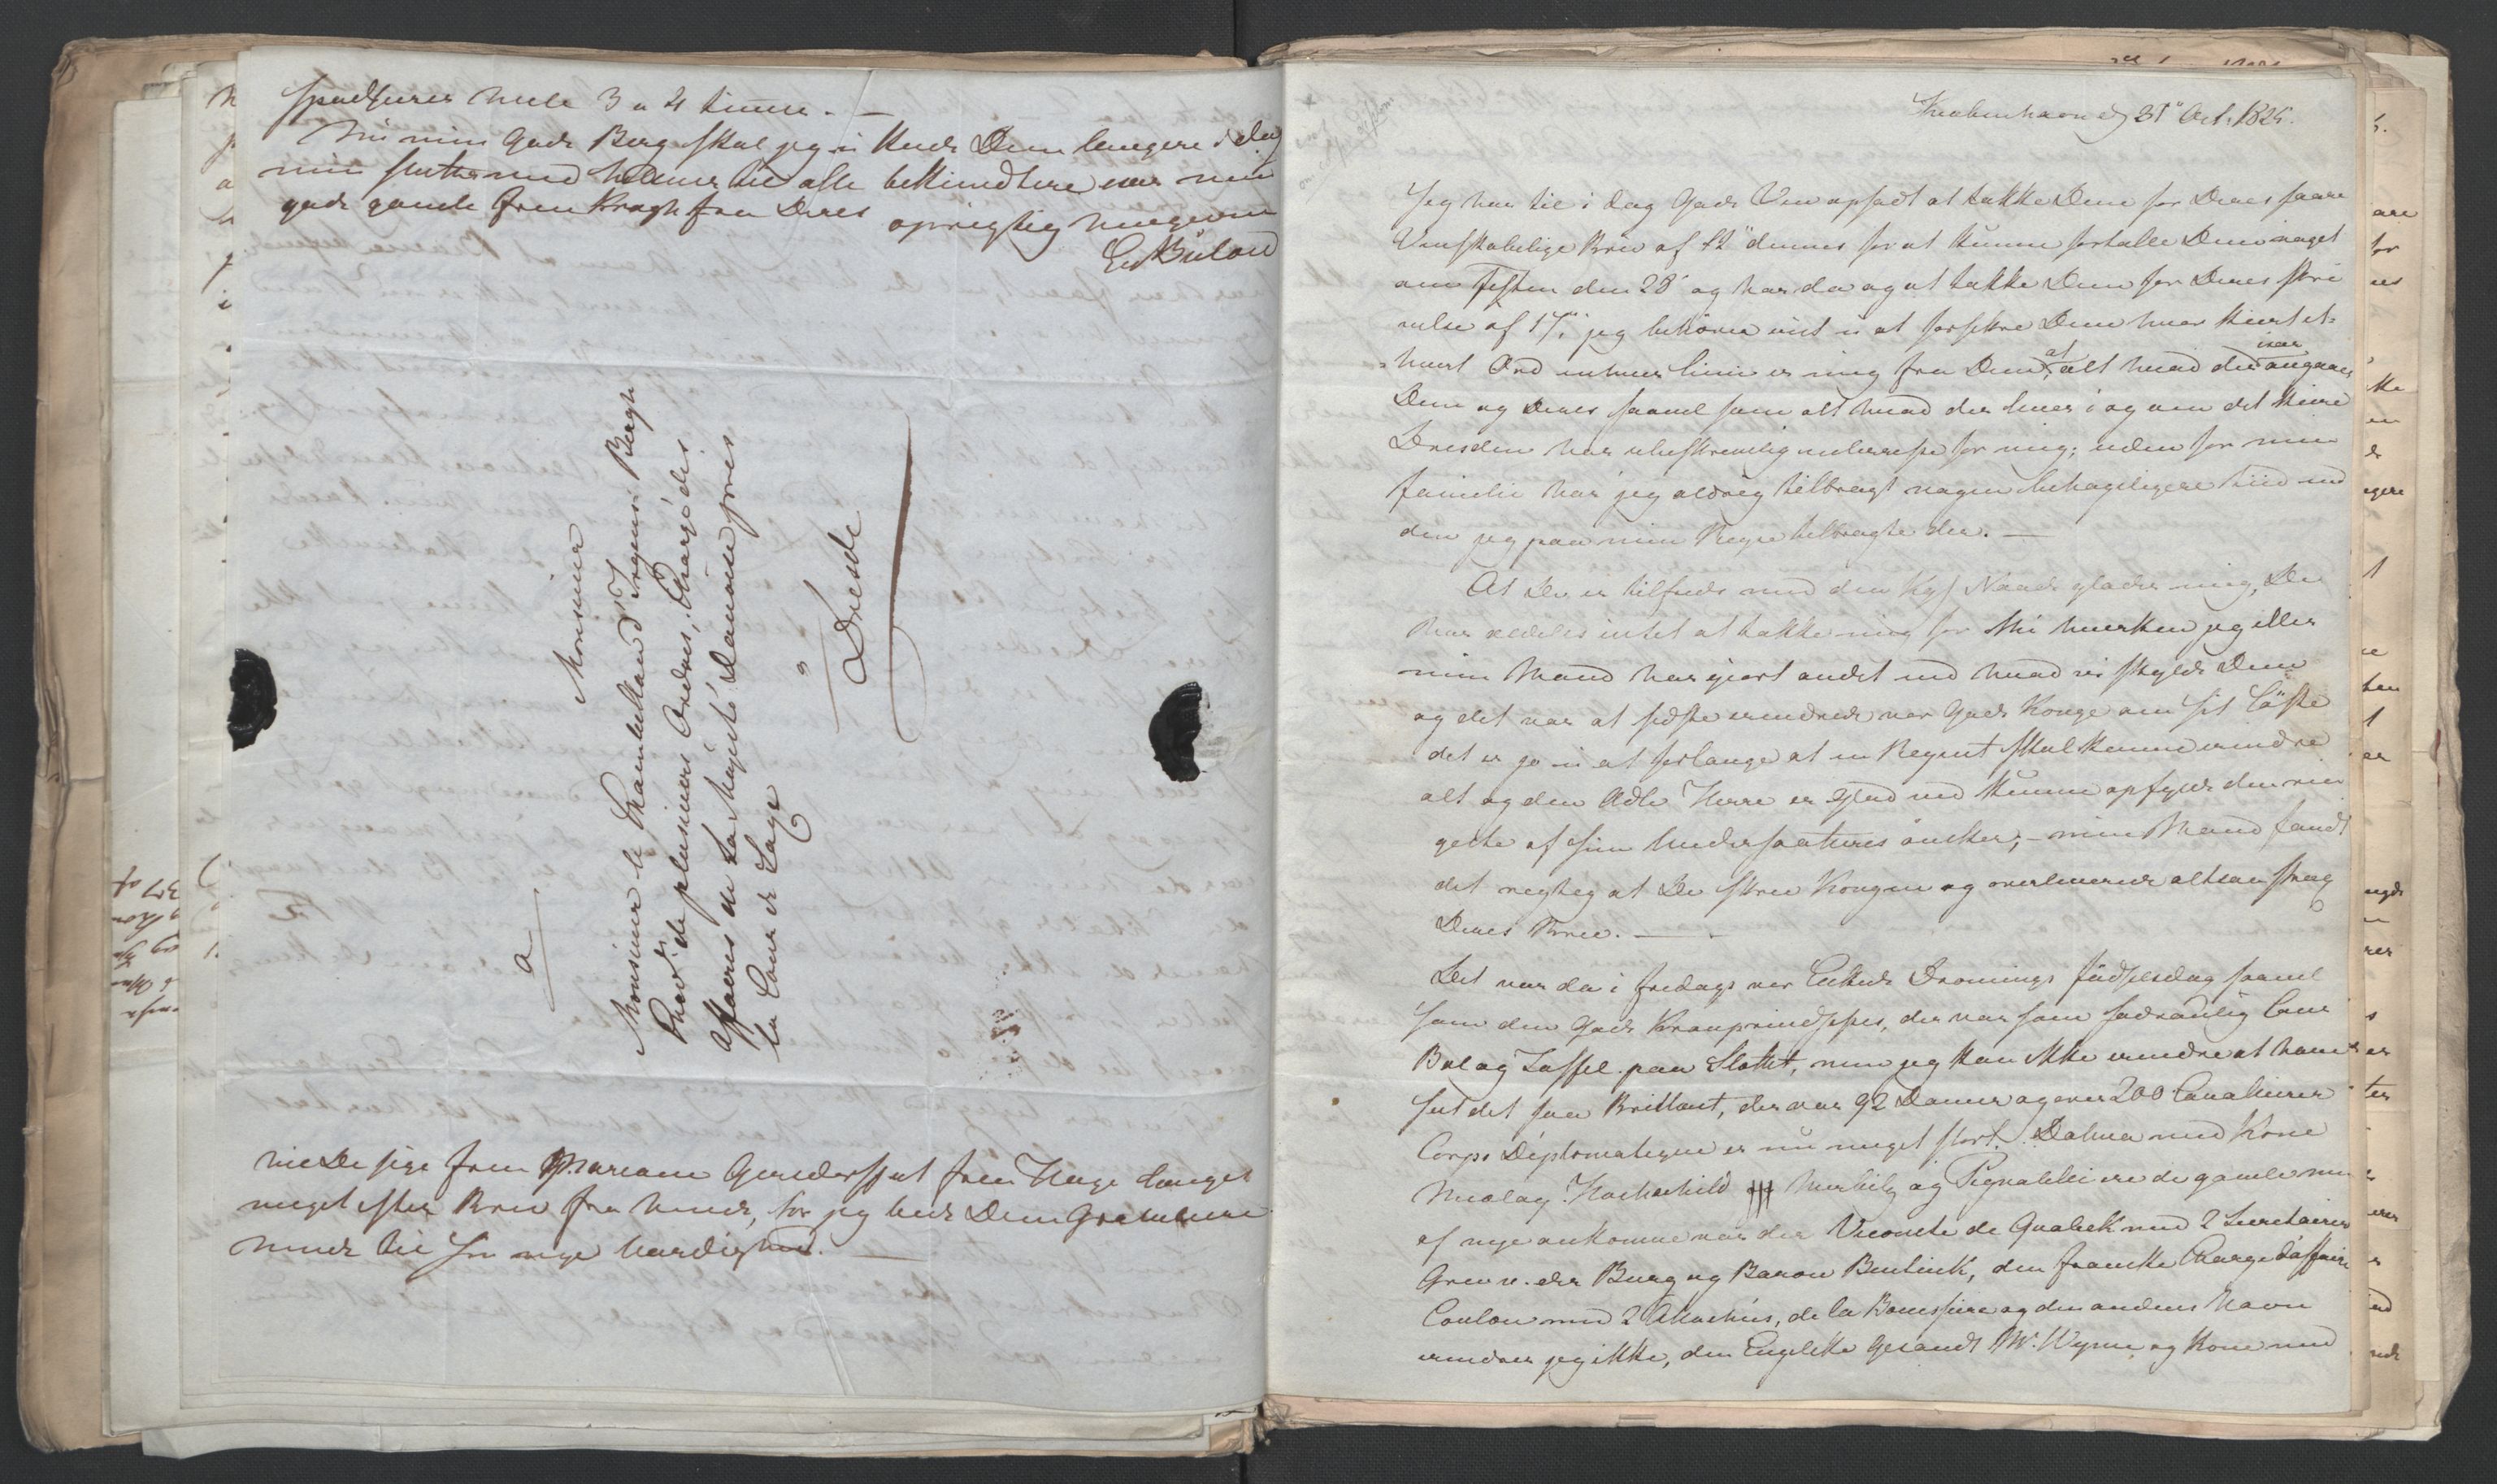 spadserer hele 3 a 4 timer. —
Nu min Gode Berg skal jeg ei kiede Dem længere i dag
min slutter med hilsener til alle bekiendtere især min
gode gamle frøen Kragh fra Deres oprigtig hengivne
Ed Bülow
Monsieur
a
Monsieur le Chambelland Irgens Bergh
Chev. de plusieurs Ordres, Chargé des
affaires de Sa Majesté Danoise près
la Cour de Saxe
a
Dresde
vil De sige frøen Mariane Gersdorff at frøen Hauge længes
meget efter Brev fra hende, for jeg beder Dem Gratulere
hende til sin nye Værdighed. —
Kiøbenhavn d 31 Oct. 1825.
Jeg har til i dag Gode Ven opsadt at takke Dem for Deres saare
Venskabelige Brev af 12 dennes for at kunne fortælle Dem noget
om Festen den 28 og har da og at takke Dem for Deres skri
velse af 17, jeg behöver vist ei at forsikre Dem hvor kiert et-
hvert Ord enhver linie er mig fra Dem, at alt hvad der især angaaer
Dem og Deres saavel som alt hvad der lever i og om det kiere
Dresden har ubeskrivelig interesse for mig; uden for min
familie har jeg aldrig tilbragt nogen behageligere tiid end
den jeg paa min Reyse tilbragte der. —
At De er tilfreds med den Kgs Naade glæder mig, De
har aldeles intet at takke mig for thi hverken jeg eller
min Mand har giort andet end hvad vi skylde Dem
og det var at sidste erindrede vor Gode Konge om sit Löfte
det er jo ei at forlange at en Regent skal kunne erindre
alt og den Ædle Herre er glad ved kunne opfylde den rin
geste af sine Undersaatteres önsker; — min Mand fandt
det rigtig at De skrev Kongen og overleverede altsaa strax
Deres Brev. —
Det var da i fredags vor Elskede Dronnings födselsdag saavel
som den Gode Kronprindsesses, der var som sædvanlig Cour
Bal og Taffel paa Slottet, men jeg kan ikke erindre at have
seet det saa Brillant, der var 92 Damer og over 200 Cavalierer
Corps Diplomatique er nu meget stort. Dalwa med Kone
Hochschild og Pignatelli ere de gamle men
af nye ankomne var der Vicomte de Quabeck med 2 Secretairer
Greve v. der Burg og Baron Bentink, den franske Charge d'affaire
Coulon med 2 Attacheés, de la Bouissiere og den andens Navn
erindrer jeg ikke, den Engelske Gesandt Mr. Wynn og Kone med